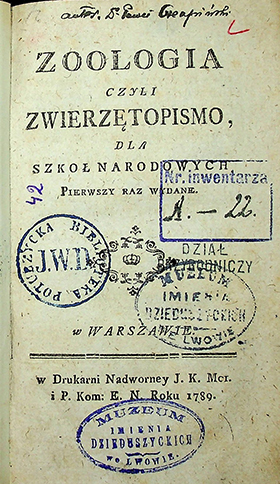 autor. D. Paweł Czenpiński
ZOOLOGIA
CZYLI
ZWIERZĘTOPISMO,
DLA
SZKOŁ NARODOWYCH
PIERWSZY RAZ WYDANE.
42
Nr. inwentarza
A. — 22.
POTURZYCKA BIBLIOTEKA
J.W.D.
DZIAŁ
PRZYRODNICZY
MUZEUM
IMIENIA
DZIEDUSZYCKICH
we LWOWIE
w WARSZAWIE
w Drukarni Nadworney J. K. Mci.
i P. Kom: E. N. Roku 1789.
MUZEUM
IMIENIA
DZIEDUSZYCKICH
we LWOWIE.